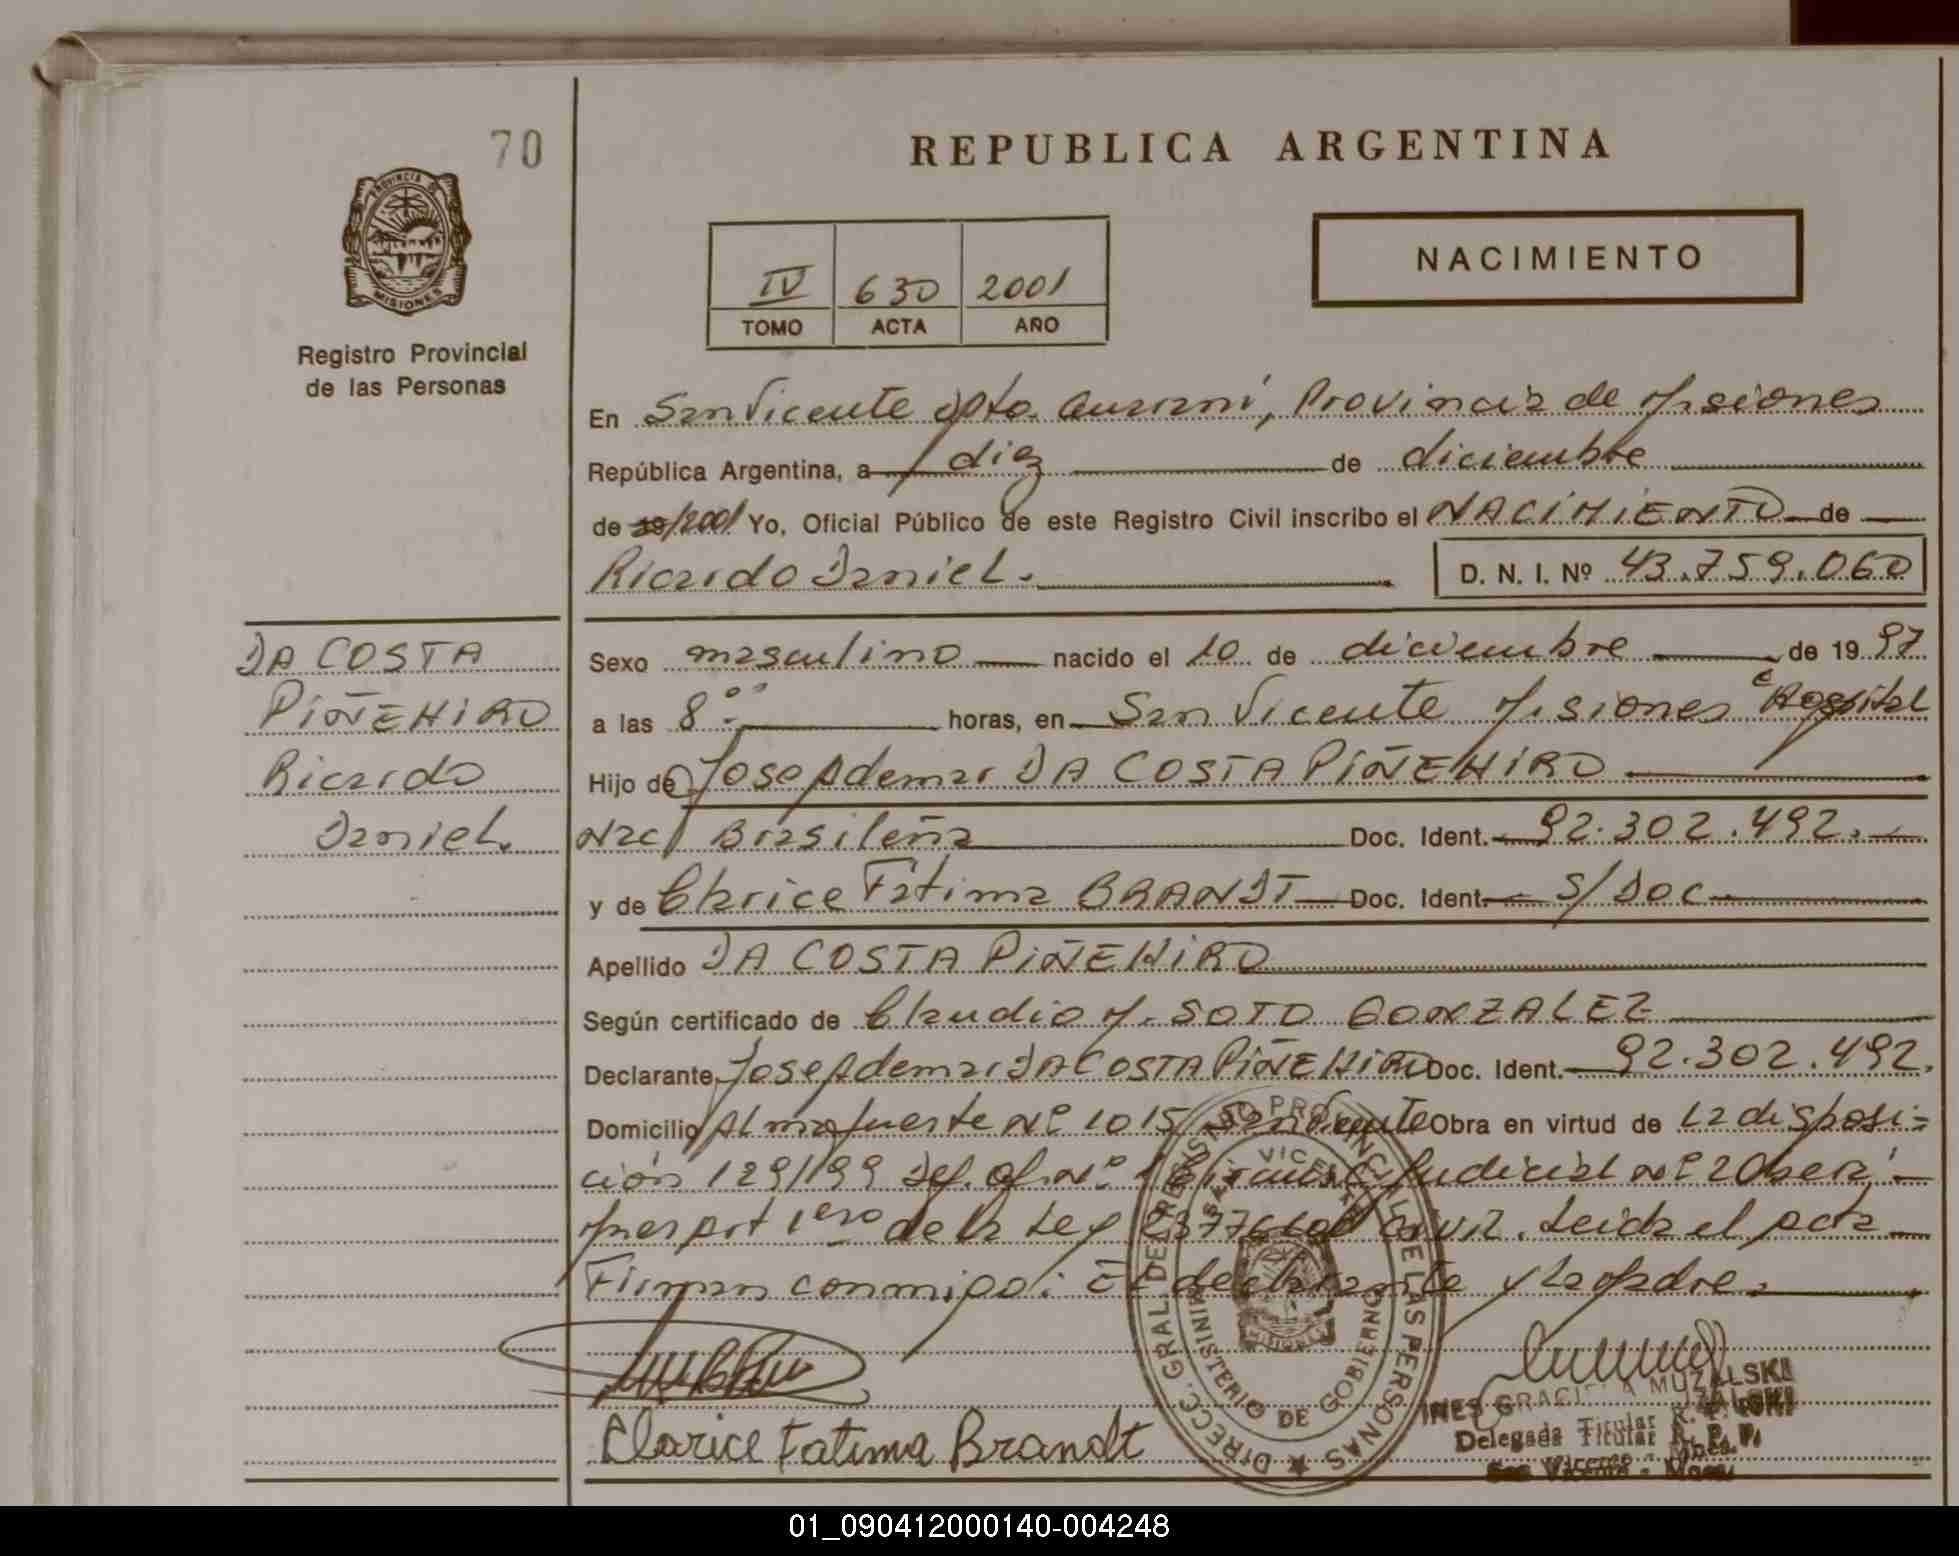 70
REPUBLICA ARGENTINA
PROVINCIA DE
MISIONES
Registro Provincial
de las Personas
NACIMIENTO
IV 630 2001
TOMO ACTA AÑO
En San Vicente Dpto. Guaraní, Provincia de Misiones
República Argentina, a diez de diciembre
de 19/2001 Yo, Oficial Público de este Registro Civil inscribo el NACIMIENTO de
Ricardo Daniel. D. N. I. Nº 43.759.060
DA COSTA
PIÑEHIRO
Ricardo
Daniel.
Sexo masculino nacido el 10 de diciembre de 1997
a las 8°° horas, en San Vicente Misiones Hospital
Hijo de Jose Ademar DA COSTA PIÑEHIRO
Nac/ Brasileña Doc. Ident. 92.302.492.
y de Clarice Fátima BRANDT Doc. Ident. S/DOC
Apellido DA COSTA PIÑEHIRO
Según certificado de Claudio M. SOTO GONZALEZ
Declarante Jose Ademar DA COSTA PIÑEHIRO Doc. Ident. 92.302.492.
Domicilio Almafuerte Nº 1015 San Vicente Obra en virtud de la disposi-
ción 129/199 Def. Of. Nº 1 Judicial Nº 2 Oberá
Mnes Art 1ero de la Ley 23776 Leida el acta
Firman conmigo: El declarante y la Madre.
Clarice Fatima Brandt
DIRECC. GRAL. DEL REGISTRO PROVINCIAL DE LAS PERSONAS
SAN VICENTE
MISIONES
MINISTERIO DE GOBIERNO
INES GRACIELA MUZALSKI
Delegada Titular R. P. P.
San Vicente - Mnes.
01_090412000140-004248